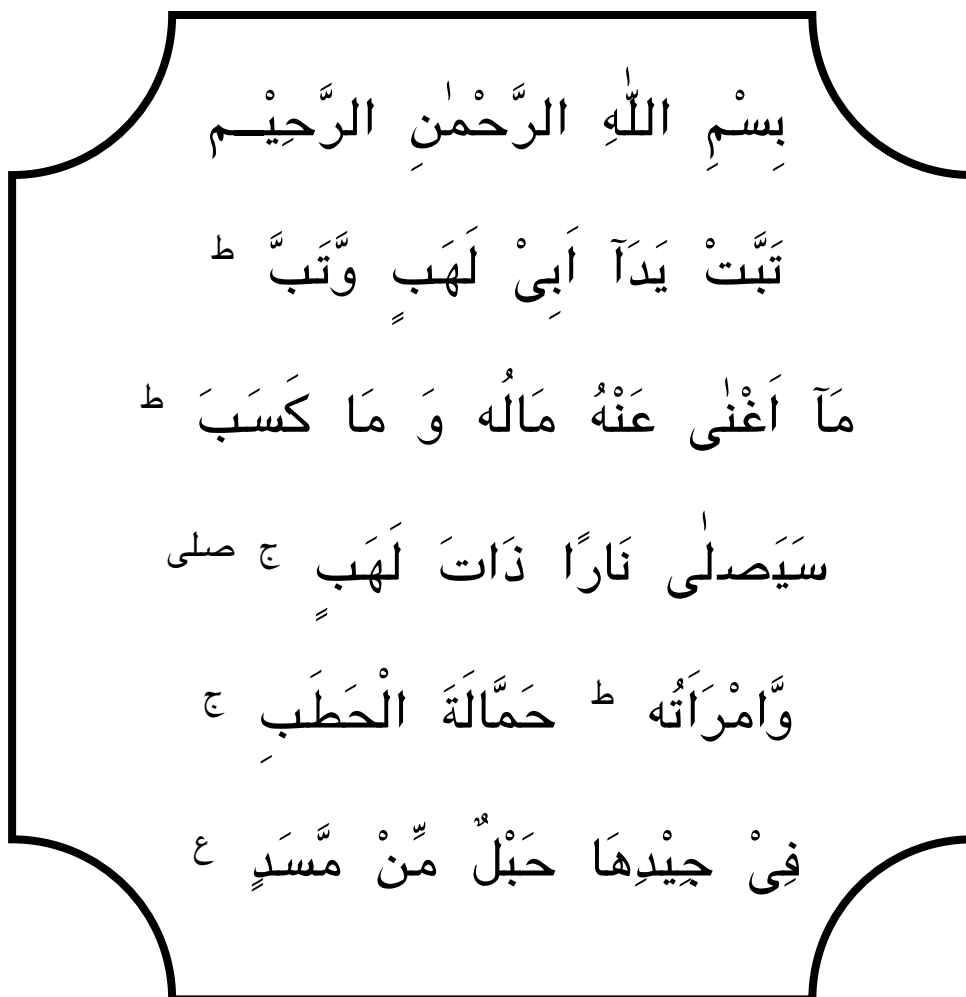 بِسْمِ اللّٰهِ الرَّحْمٰنِ الرَّحِيْـــم
تَبَّتْ يَدَآ اَبِىْ لَهَبٍ وَّتَبَّ ط
مَآ اَغْنٰى عَنْهُ مَالُه وَ مَا كَسَبَ ط
سَيَصلٰى نَارًا ذَاتَ لَهَبٍ ج صلى
وَّامْرَاَتُه ط حَمَّالَةَ الْحَطَبِ ج
فِىْ جِيْدِهَا حَبْلٌ مِّنْ مَّسَدٍ ع